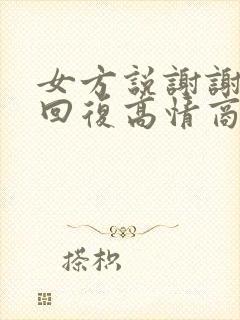 女方説謝謝
回復高情商
搽枳